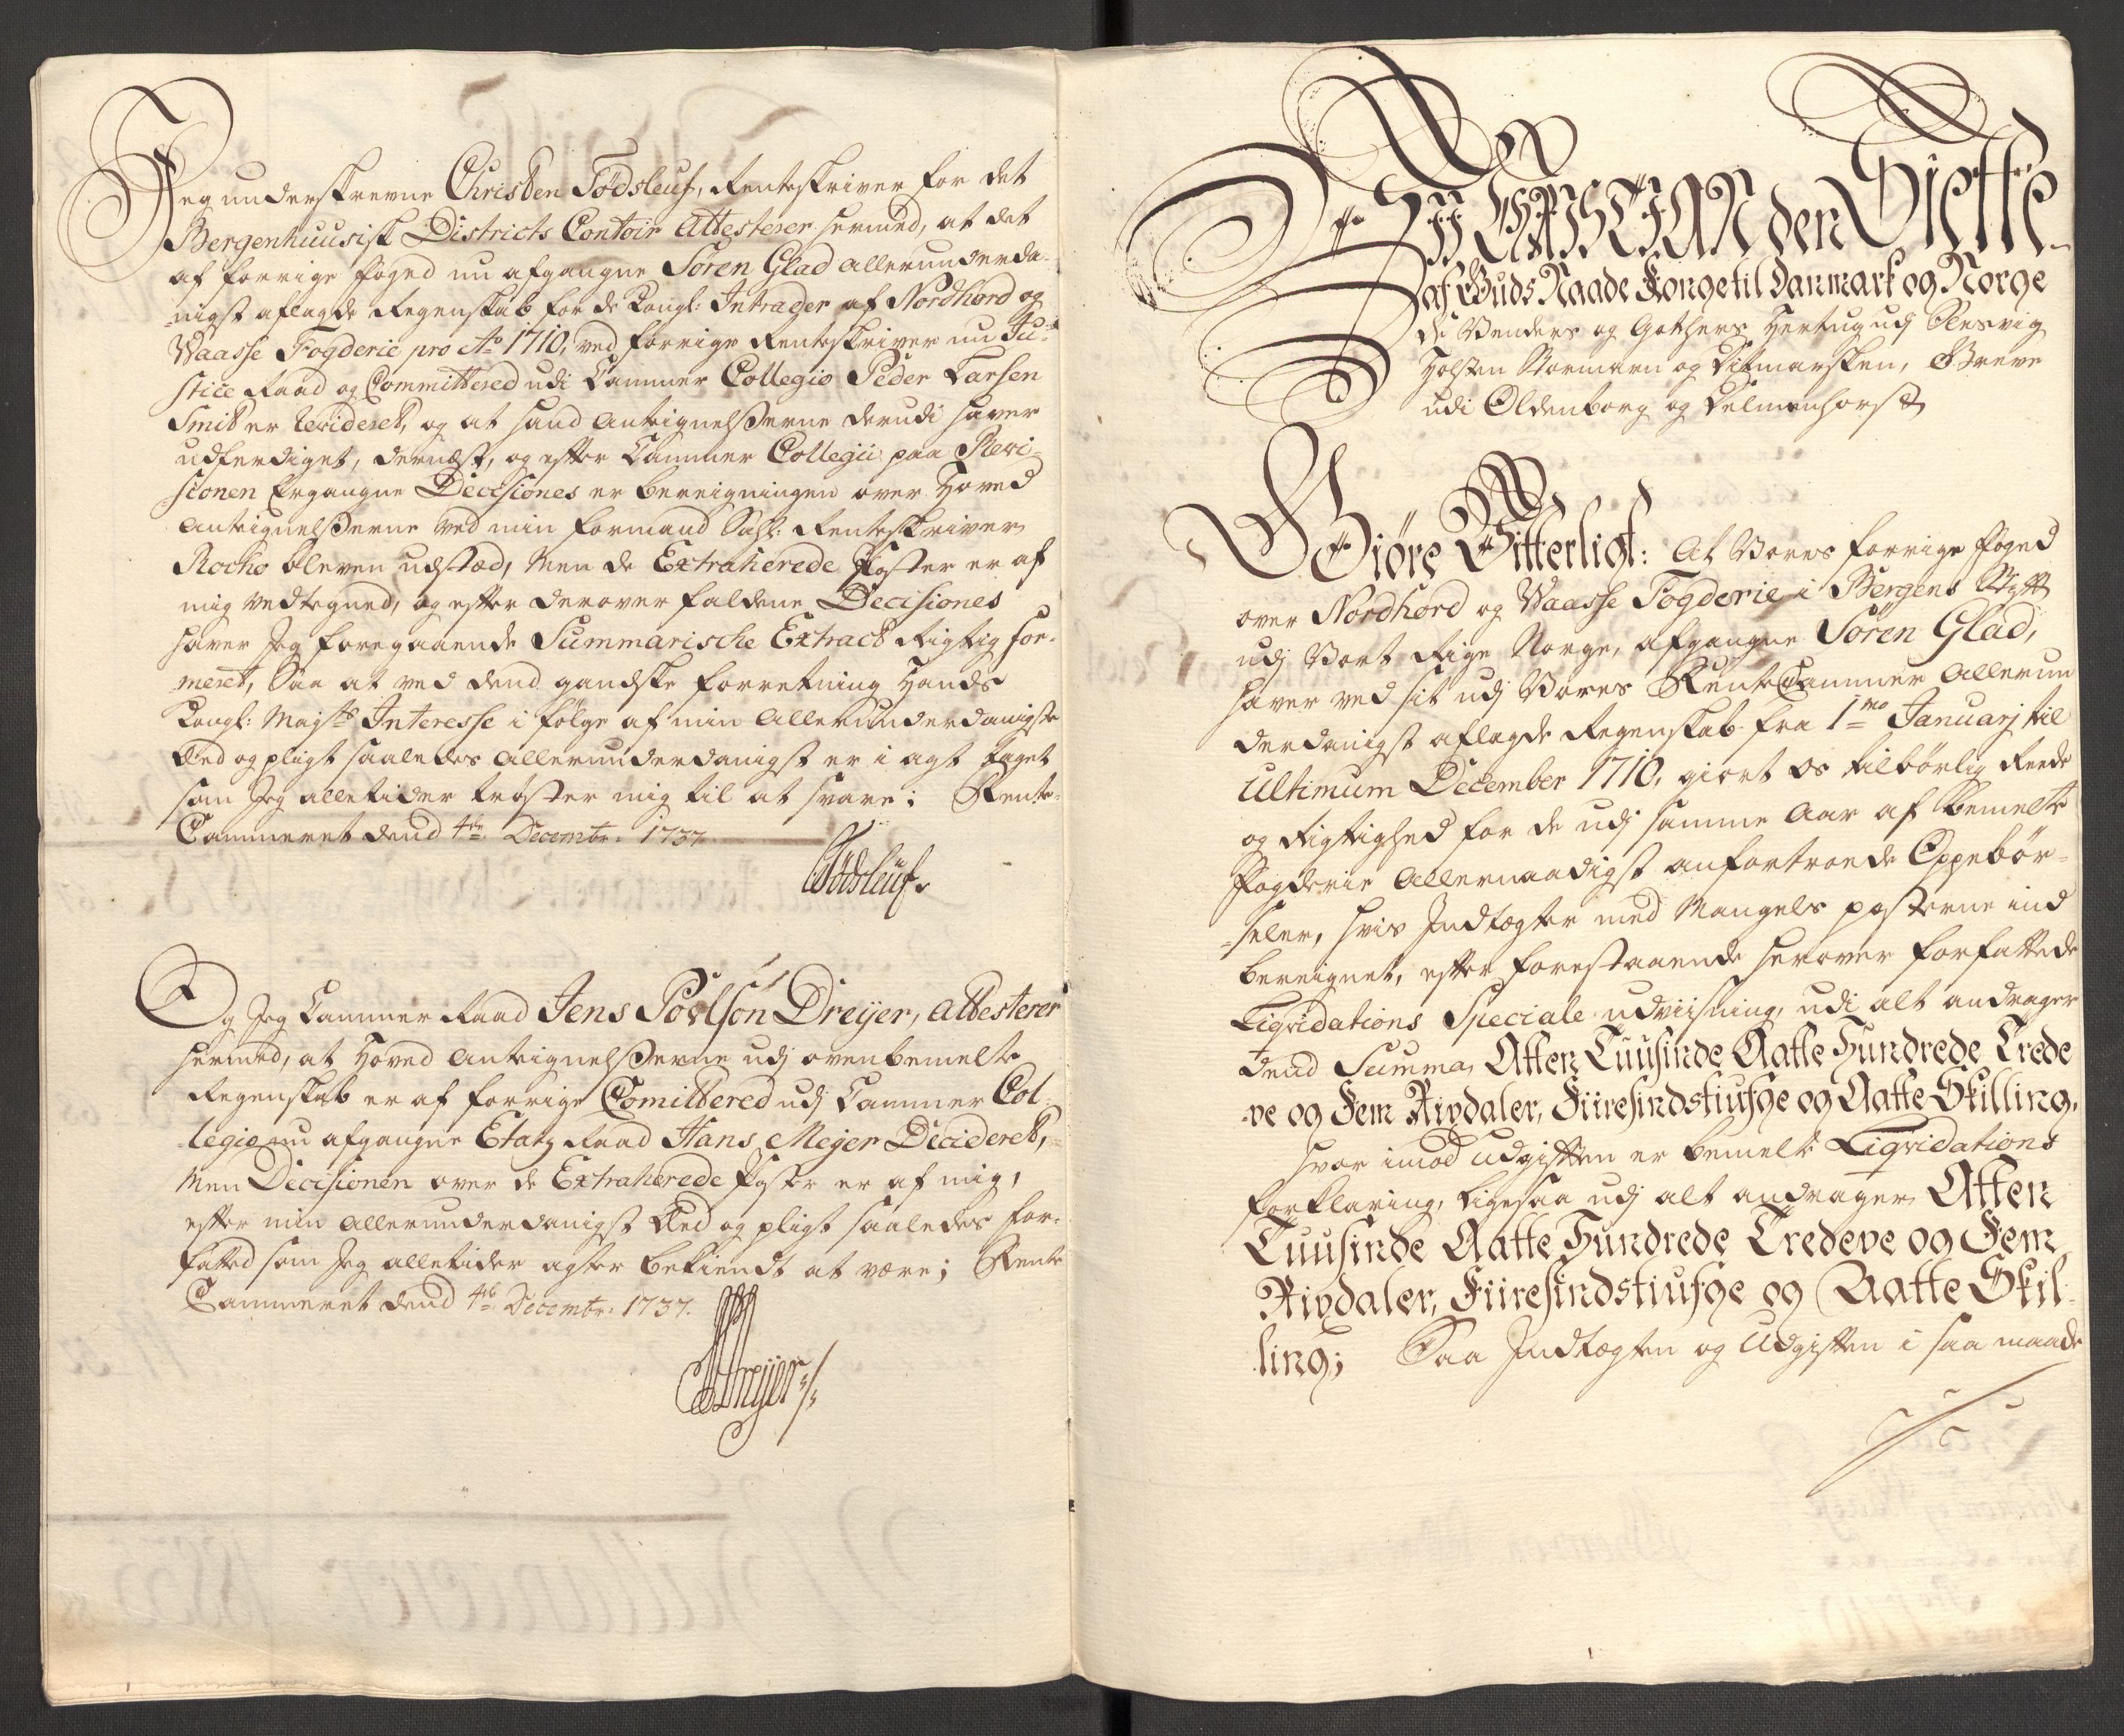 Jeg underskrevne Christen Tödsleuf, Renteskriver for det
Bergenhuusisk Districts Contoir Attesterer hermed, at det
af forrige foged nu afgangne Sören Glad allerunderda-
-nigst aflagde Regenskab for de Kongl: Intrader af Nordhord og
Waasse Fogderie pro Ao 1710, ved forrige Renteskriver nu Ju-
stice Raad og Committered udi Cammer Collegio Peder Larsen
Smit er Revideret, og at hand Antegnelsserne derudi haver
udferdiget, dernæst, og efter Cammer Collegii paa Revi-
sionen Ergangne Decisiones er bereigningen over Hoved
Antegnelsserne ved min formand Sahl: Renteskriver
Rocho bleven udstæd, Men de Extraherede Poster er af
mig vedtegned, og efter derover faldene Decisiones
haver Jeg foregaaende Summarische Extract Rigtig for-
meret, Saa at ved dend gandske forretning Hands
Kongl: Mayts Interesse i følge af min allerunderdanigste
Eed og pligt saaledes allerunderdanigst er i agt taget
som Jeg alletider trøster mig til at svare; Rente-
Cammeret dend 4de Decembr: 1737.
Tödsleuf.
Og Jeg Cammer Raad Jens Povlsön Dreyer, Attesterer
hermed, at Hoved Antegnelsserne udj ovenbemelte
Regenskab er af forrige Comittered udj Cammer Col-
legio nu afgangne Etatz Raad Hans Meyer Decideret,
Men Decisionen over de Extraherede Poster er af mig,
efter min allerunderdanigst Eed og pligt saaledes for-
fatted som Jeg alletider agter bekiendt at være; Rente
Cammeret dend 4de Decembr: 1737.
Dreyer
Wii CHRISTIAN den Siette
af Guds Naade Konge til Danmark og Norge
de Venders og Gothers Hertug udj Slesvig
Holsten Stormarn og Ditmarsken, Greve
udi Oldenborg og Delmenhorst
Giöre Vitterligt: At Vores forrige foged
over Nordhord og Waasse Fogderie i Bergens Stift
udj Vort Rige Norge, afgangne Sören Glad,
haver ved sit udj Vores Rente Cammer Allerun
derdanigst aflagde Regenskab fra 1mo Januarj til
Ultimum December 1710, giort os tilbørlig Reede
og Rigtighed for de udj samme Aar af bemelte
Fogderie Allernaadigst anfortroede Oppebør-
-seler, hvis Indtægter med Mangels posterne ind
bereignet, efter forestaaende herover forfattede
Liqvidations Speciale udviisning, udi alt andrager
dend Summa, Atten Tuusinde Aatte Hundrede Trede
-ve og Fem Rixdaler, Fiiresindstiufge og Aatte Skilling,
hvor imod Udgiften er bemelte Liqvidations
forklaring, ligesaa udj alt andrager Atten
Tuusinde Aatte Hundrede Tredeve og Fem
Rixdaler, Fiiresindstiufge og Aatte Skil-
ling; Saa Indtægten og Udgiften i saa maade